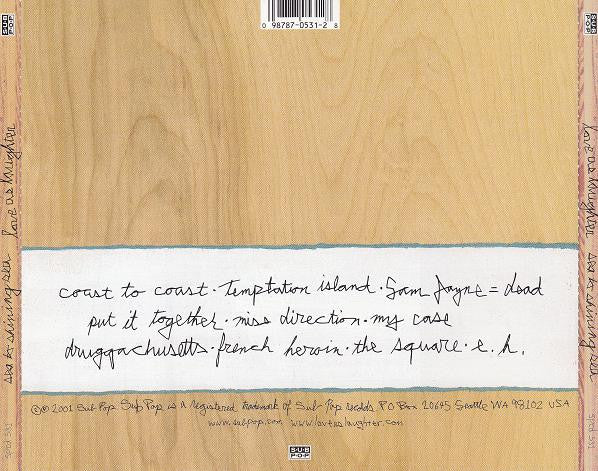 SUB POP
0 98787-0531-2 8
SUB POP
love as laughter
sea to shining sea
SPCD 531
coast to coast · Temptation island · Sam Jayne = dead
put it together · miss direction · my case
druggachusetts · french heroin · the square · e. h.
©℗ 2001 Sub Pop Sub Pop is a registered trademark of Sub Pop records PO Box 20645 Seattle WA 98102 USA
www.subpop.com www.loveaslaughter.com
SUB POP
love as laughter
sea to shining sea
SPCD 531